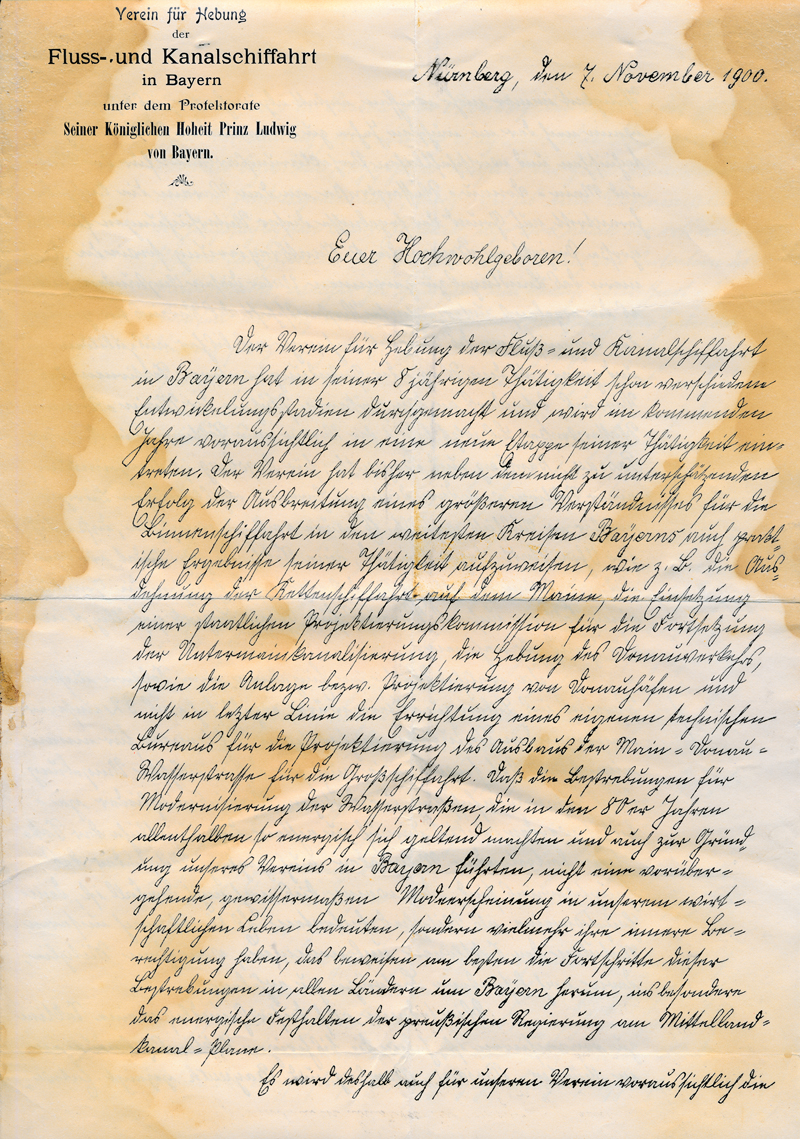 Verein für Hebung
der
Fluss- und Kanalschiffahrt
in Bayern
unter dem Protektorate
Seiner Königlichen Hoheit Prinz Ludwig
von Bayern.
Nürnberg, den 7. November 1900.
Euer Hochwohlgeboren!
Der Verein für Hebung der Fluß- und Kanalschiffahrt
in Bayern hat in seiner 8 jährigen Thätigkeit schon verschiedene
Entwickelungsstadien durchgemacht und wird im kommenden
Jahre voraussichtlich in eine neue Etappe seiner Thätigkeit ein-
treten. Der Verein hat bisher neben dem nicht zu unterschätzenden
Erfolg der Ausbreitung eines größeren Verständnisses für die
Binnenschiffahrt in den weitesten Kreisen Bayerns auch prakt-
ische Ergebnisse seiner Thätigkeit aufzuweisen, wie z. B. die Aus-
dehnung der Kettenschiffahrt auf dem Maine, die Einsetzung
einer staatlichen Projektierungskommission für die Fortsetzung
der Untermainkanalisierung, die Hebung des Donauverkehrs,
sowie die Anlage bezw. Projektierung von Donauhäfen und
nicht in letzter Linie die Errichtung eines eigenen technischen
Bureaus für die Projektierung des Ausbaus der Main-Donau-
Wasserstrasse für die Großschiffahrt. Daß die Bestrebungen für
Modernisierung der Wasserstraßen, die in den 80er Jahren
allenthalben so energisch sich geltend machten und auch zur Gründ-
ung unseres Vereins in Bayern führten, nicht eine vorüber-
gehende, gewissermaßen Modeerscheinung in unserem wirt-
schaftlichen Leben bedeuten, sondern vielmehr ihre innere Be-
rechtigung haben, das beweisen am besten die Fortschritte dieser
Bestrebungen in allen Ländern um Bayern herum, insbesondere
das energische Festhalten der preußischen Regierung am Mittelland-
kanal-Plane.
Es wird deshalb auch für unseren Verein voraussichtlich die